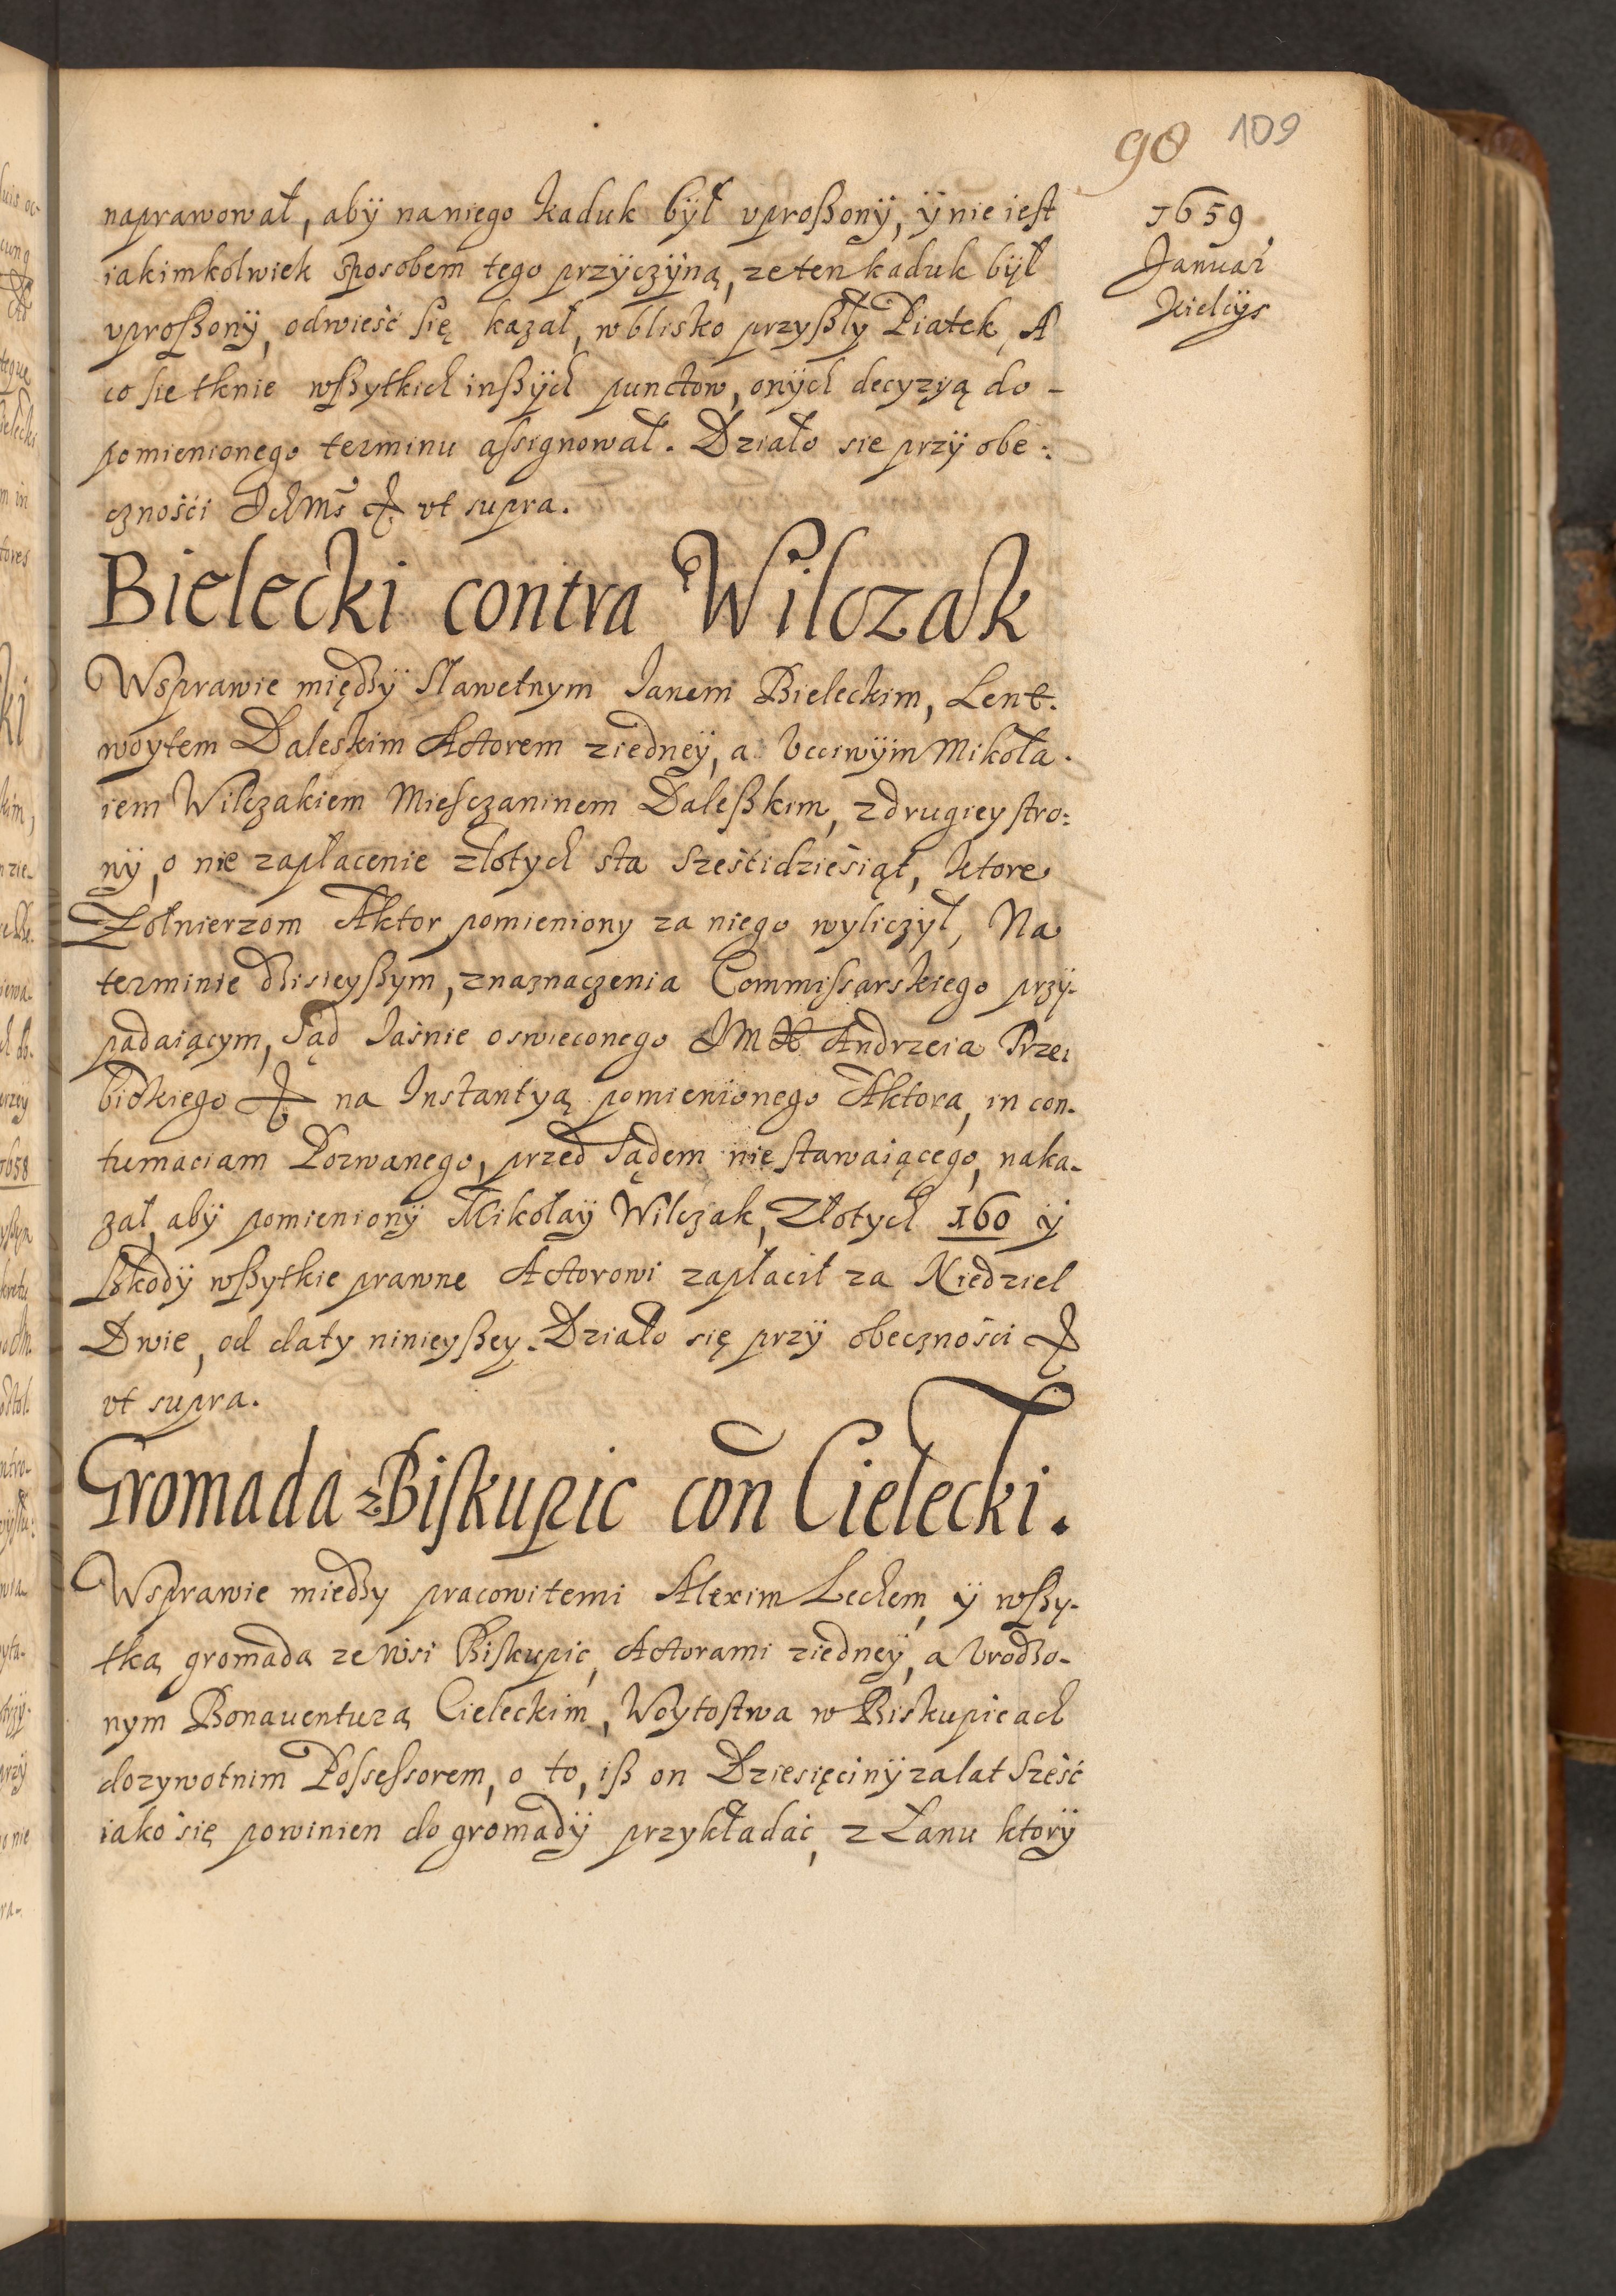 98 109
1659
Januar
Kielcÿs
naprawował, abÿ na niego kaduk bÿł vproßonÿ, ÿ nie iest
iakimkolwiek sposobem tego przÿczÿną, ze ten kaduk bÿł
vproßonÿ, odwieść się kazał, w blisko przyßły Piatek, A
co sie tknie wßytkich inßÿch punctow, onÿch decyzyą do-
pomienionego terminu assignował. Działo sie przÿ obe:
czności IchMś &c vt supra.
Bielecki contra Wilczak
W sprawie międzÿ Sławetnym Janem Bieleckim, Lent.
woytem Daleskim Actorem z iedneÿ, a Vcciwÿm Mikoła.
iem Wilczakiem Miesczaninem Daleßkim, z drugiey stro:
nÿ, o nie zapłacenie złotych sta sześćidziesiąt, ktore
Żołnierzom Aktor pomieniony za niego wyliczÿł, Na
terminie dzisieyßym, z naznaczenia Commissarskiego przÿ-
padaiącym, Sąd Jaśnie oswieconego JMX Andrzeia Trze:
bickiego &c na Instantyą pomienionego Aktora, in con-
tumaciam Pozwanego, przed Sądem nie stawaiącego, naka-
zał, abÿ pomienionÿ Mikołaÿ Wilczak, Złotych 160 ÿ
ßkodÿ wßytkie prawne Actorowi zapłacił za Niedziel
Dwie, od daty ninieyßey. Działo się przÿ obecznosci &c
vt supra.
Gromada z Biskupic con Cielecki.
W sprawie miedzy pracowitemi Alexim Lechem, ÿ wßy-
tką gromadą ze wsi Biskupic, Actorami z iedneÿ, a Vrodzo-
nym Bonauenturą Cieleckim, Woytostwa w Biskupicach
dozywotnim Possessorem, o to, iß on Dziesięcinÿ za lat sześć
iako się powinien do gromadÿ przykładać, z Łanu ktorÿ